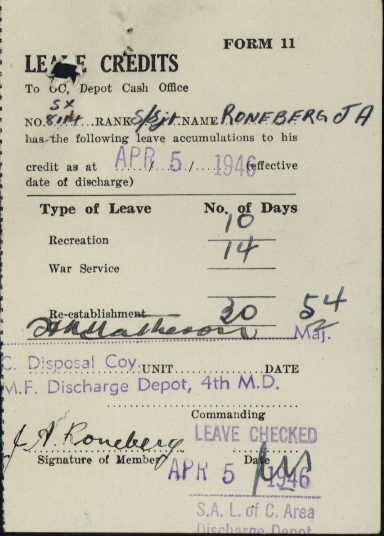 FORM 11
LEAVE CREDITS
To OC, Depot Cash Office
SX
NO. 8114 RANK S/Sjt NAME RONEBERG J A
has the following leave accumulations to his
credit as at APR 5 1946 (effective
date of discharge)
Type of Leave No. of Days
Recreation 10
War Service 14
Re-establishment 30 54
Maj.
C. Disposal Coy. UNIT DATE
M.F. Discharge Depot, 4th M.D.
Commanding
LEAVE CHECKED
J. A. Roneberg
Signature of Member Date
APR 5 1946
S.A. L. of C. Area
Discharge Depot